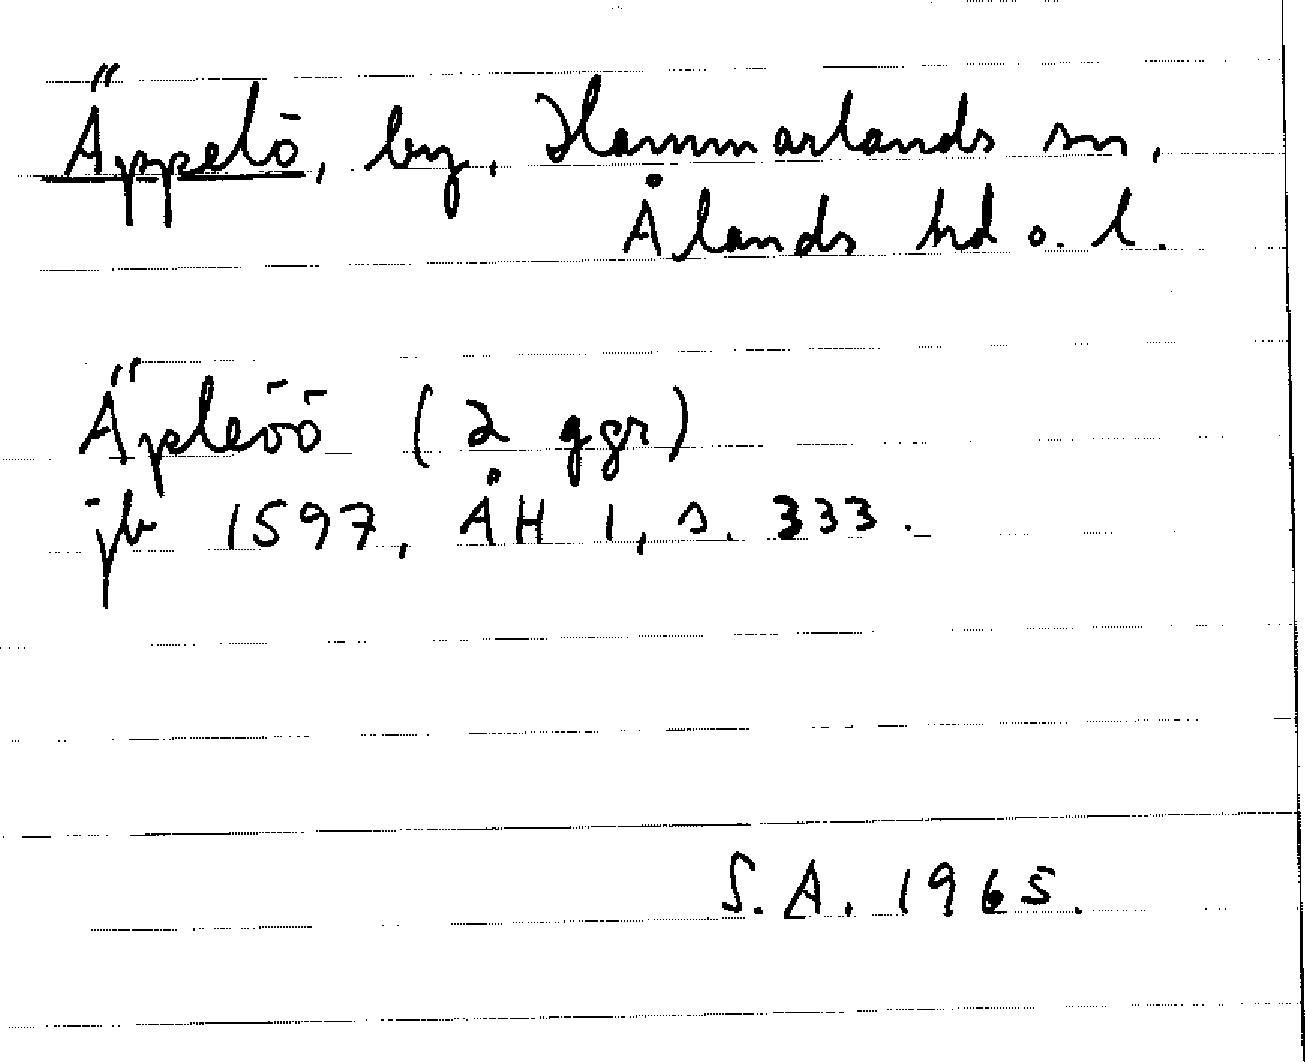 Äppelö, by, Hammarlands sn,
Ålands hd o. l.
Äpleöö (2 ggr)
jb 1597, ÅH 1, s. 333.
S.A. 1965.